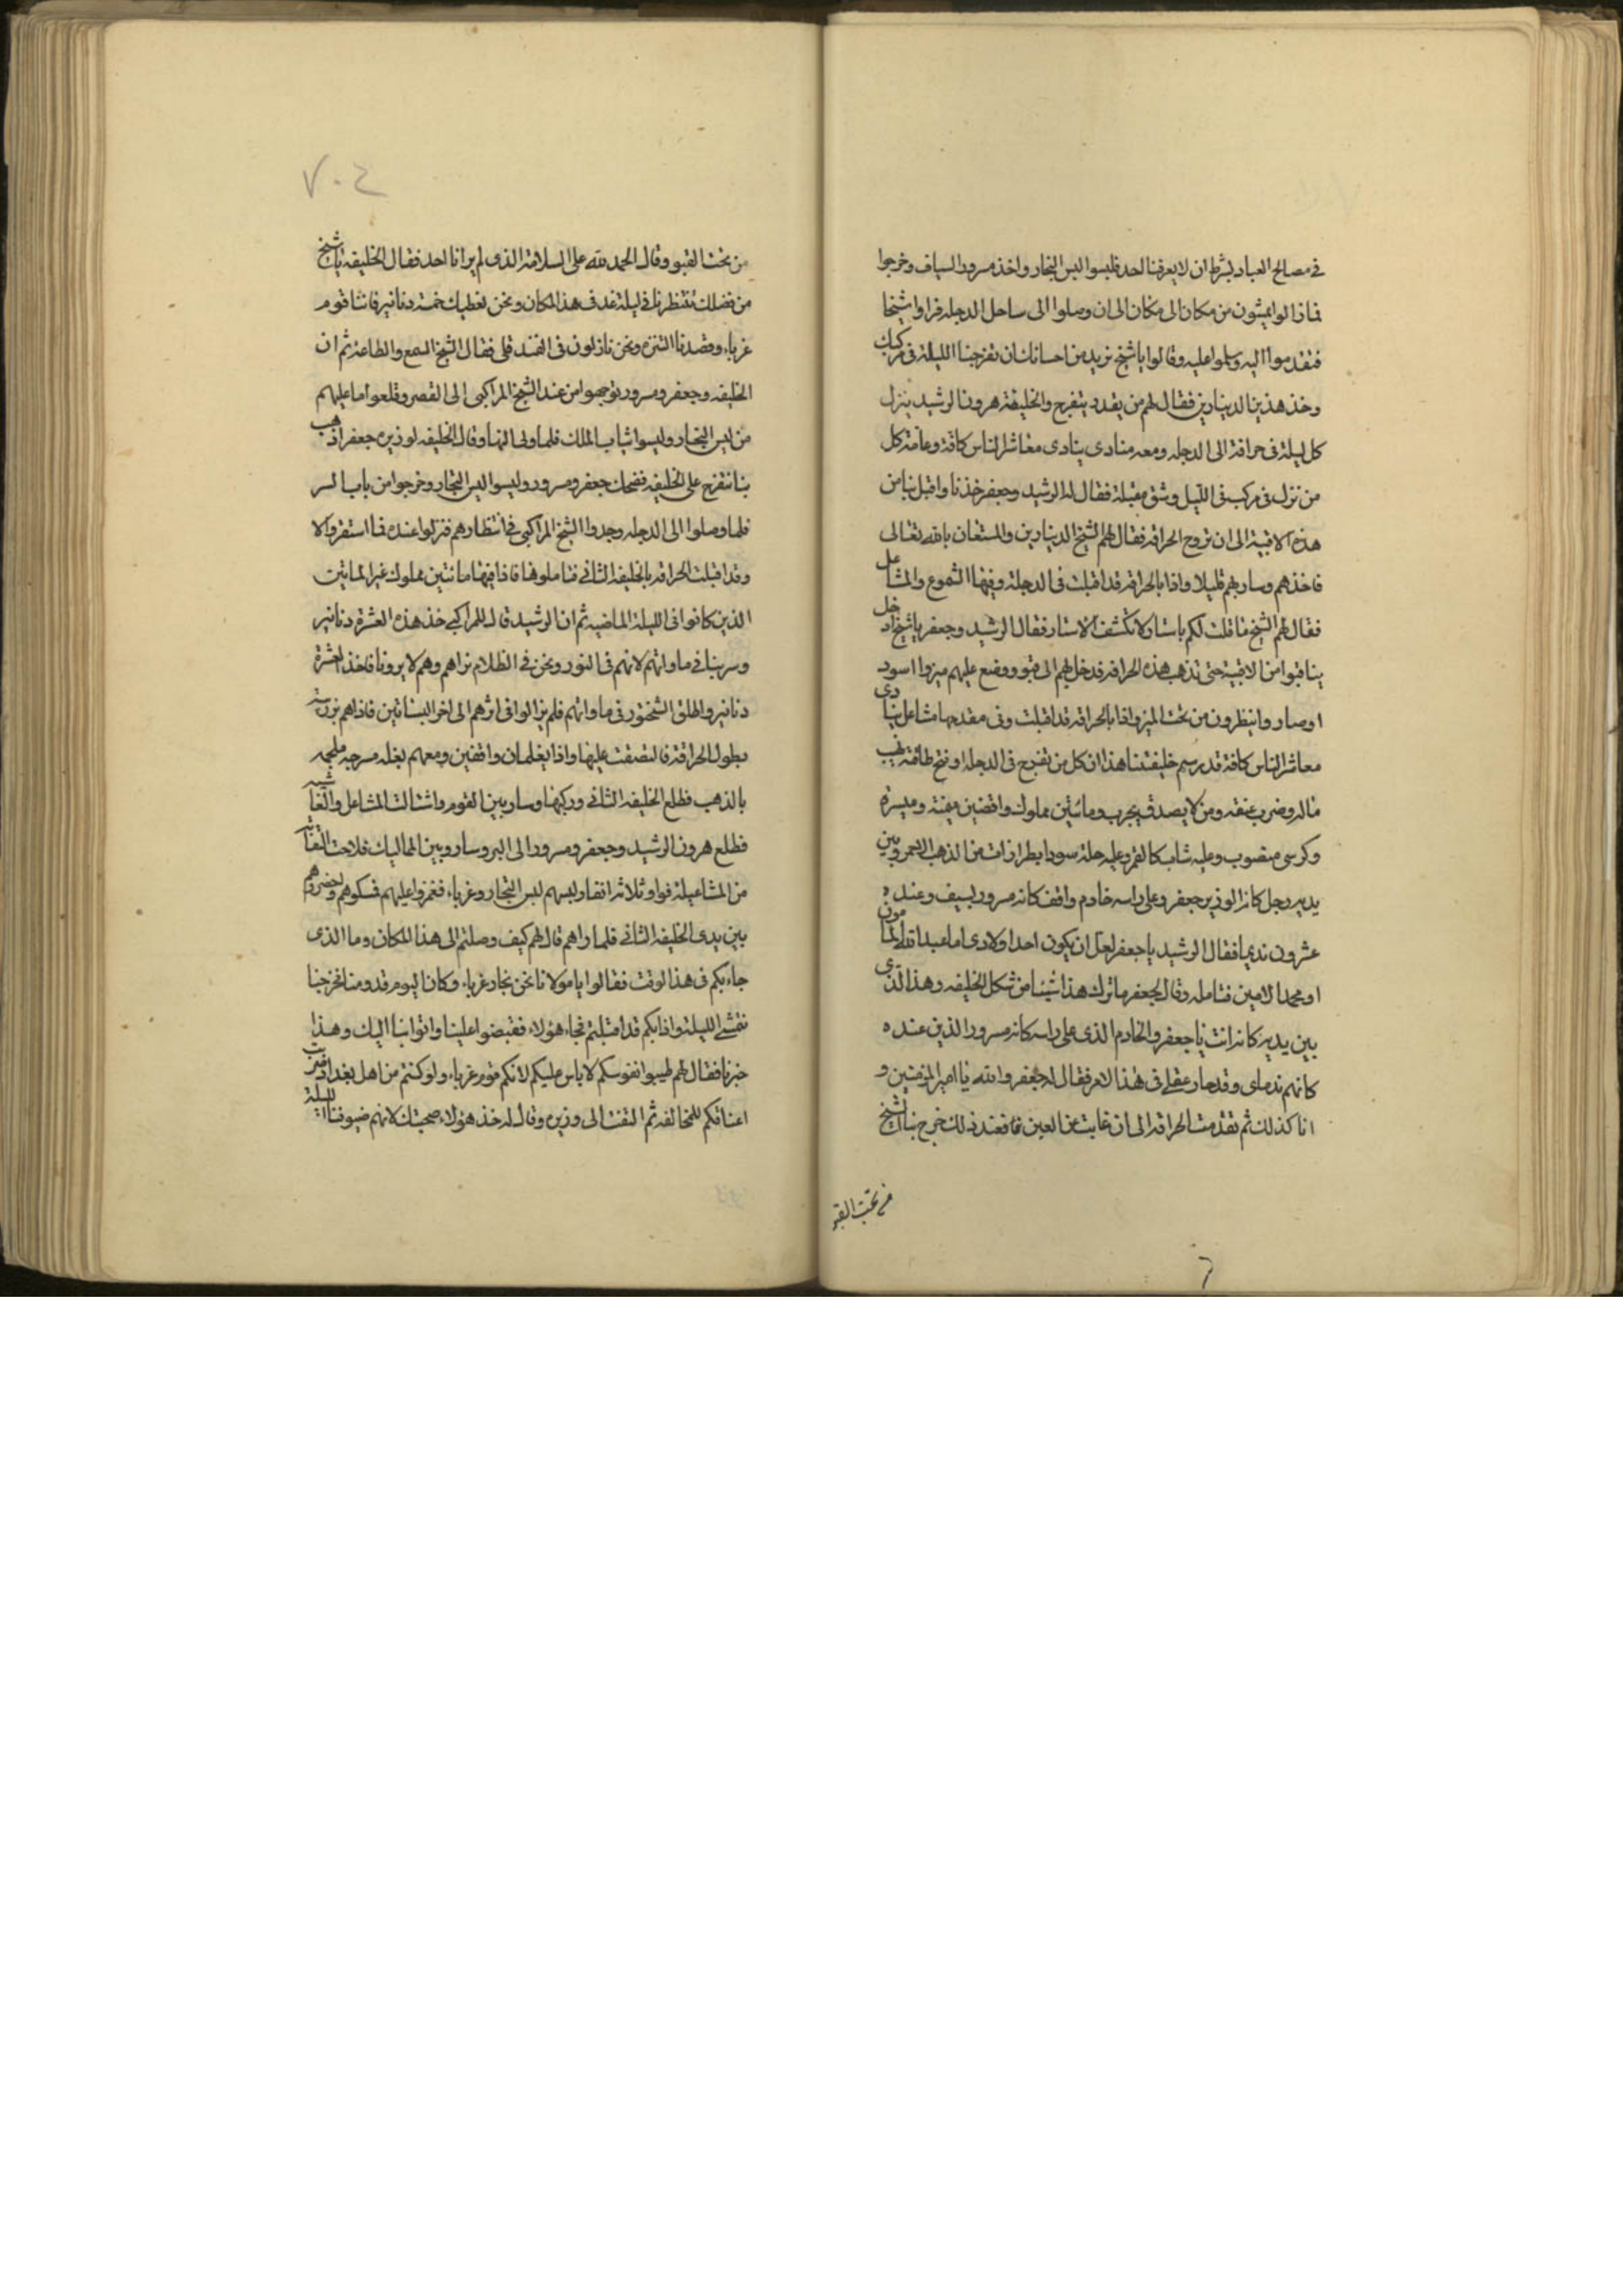 في مصالح العباد بشرط ان لا يعرفنا احد فلبسوا لبس التجار واخذ مسرور السياف وخرجوا
فما زالوا يمشون من مكان الى مكان الى ان وصلوا الى ساحل الدجله فراوا شيخا
فتقدموا اليه وسلموا عليه وقالوا يا شيخ نريد من احسانك ان تفرجنا الليلة في مركبك
وخذ هذين الدينارين فقال لهم من يقدر يتفرج والخليفة هرون الرشيد ينزل
كل ليلة في حراقة الى الدجله ومعه منادى ينادى معاشر الناس كافة وعامة كل
من نزل في مركب في الليل وشق مقبلة فقال له الرشيد وجعفر خذنا واقبل بنا من
هذه الاقبية الى ان تروح الحراقه فقال لهم الشيخ الدينارين والمستعان بالله تعالى
فاخذهم وسار بهم قليلا واذا بالحراقه قد اقبلت في الدجلة وفيها الشموع والمشاعل
فقال لهم الشيخ ما قلت لكم يا ستار لا تكشف الاستار فقال الرشيد وجعفر يا شيخ ادخل
بنا قبوا من الاقبية حتى تذهب هذه الحراقه فدخل بهم الى قبو ووضع عليهم ميزرا اسود
وصاروا ينظرون من تحت الميزر واذا بالحراقه قد اقبلت وفى مقدمها مشاعل ينادى
معاشر الناس كافة قد رسم خليفتنا هذا ان كل من تفرج في الدجله او فتح طاقة نهب
ماله وضرب عنقه ومن لا يصدق يجرب ومائتين مملوك واقفين ميمنة وميسرة
وكرسى منصوب وعليه شاب كالقمر وعليه حلة سودا بطرازات من الذهب الاحمر وبين
يديه رجل كانه الوزير جعفر وعلى راسه خادم واقف كانه مسرور بسيف وعنده
عشرون نديما فقال الرشيد يا جعفر لعل ان يكون احد اولادى اما عبد الله المامون
او محمد الامين فتامله وقال لجعفر ما ترك هذا شيئا من شكل الخليفه وهذا الذى
بين يديه كانه انت يا جعفر والخادم الذى على راسه كانه مسرور والذين عنده
كانهم ندماى وقد حار عقلى فى هذا الامر فقال له جعفر والله يا امير المؤمنين و
انا كذلك ثم تقدمت الحراقه الى ان غابت عن العين فعند ذلك خرج بنا الشيخ
من تحت القبو
٧٠٤
من تحت القبو وقال الحمد لله على السلامة الذى لم يرانا احد فقال الخليفه يا شيخ
من فضلك تنتظرنا فى ليلة غد فى هذا المكان ونحن نعطيك خمسة دنانير فاننا قوم
غرباء وقصدنا التنزه ونحن نازلون فى الفندق فقال الشيخ السمع والطاعة ثم ان
الخليفه وجعفر ومسرور توجهوا من عند الشيخ المراكبى الى القصر وقلعوا ما عليهم
من لبس التجار ولبسوا ثياب الملك فلما ولى النهار وقال الخليفه لوزيره جعفر اذهب
بنا نتفرج على الخليفه فضحك جعفر ومسرور ولبسوا لبس التجار وخرجوا من باب السر
فلما وصلوا الى الدجله وجدوا الشيخ المراكبى فى انتظارهم فنزلوا عنده فما استقروا الا
وقد اقبلت الحراقه بالخليفه الثانى فتاملوها فاذا فيها مائتين مملوك غير المائتين
الذين كانوا فى الليلة الماضيه ثم ان الرشيد قال للمراكبى خذ هذه العشرة دنانير
وسر بنا فى ماواتهم لانهم فى النور ونحن فى الظلام نراهم وهم لا يرونا فاخذ العشرة
دنانير واطلق الشختور فى ماواتهم فلم يزالوا فى اثرهم الى اخر البساتين فاذاهم بزريبة
بطول الحراقة فالتصقت عليها واذا بغلمان واقفين ومعهم بغله مسرجه ملجمه
بالذهب فطلع الخليفه الثانى وركبها وسار بين القوم واشتالت المشاعل والغاشيه
فطلع هرون الرشيد وجعفر ومسرور الى البر وساروا بين المماليك فلاحت التفاته
من المشاعيلة فراوا ثلاثة انفار لبسهم لبس التجار وغرباء فغمزوا عليهم فمسكوهم واحضروهم
بين يدى الخليفه الثانى فلما راهم قال لهم كيف وصلتم الى هذا المكان وما الذى
جاء بكم فى هذا الوقت فقالوا يا مولانا نحن تجار غرباء وكان اليوم قدومنا فخرجنا
نتمشى الليلة واذا بكم قد اقبلتم فجاء هؤلاء فقبضوا علينا واتوا بنا اليك وهذا
خبرنا فقال لهم طيبوا نفوسكم لا باس عليكم لانكم قوم غرباء ولو كنتم من اهل بغداد ضربت
اعناقكم للمخالفه ثم التفت الى وزيره وقال له خذ هؤلاء صحبتك لانهم ضيوفنا الليلة